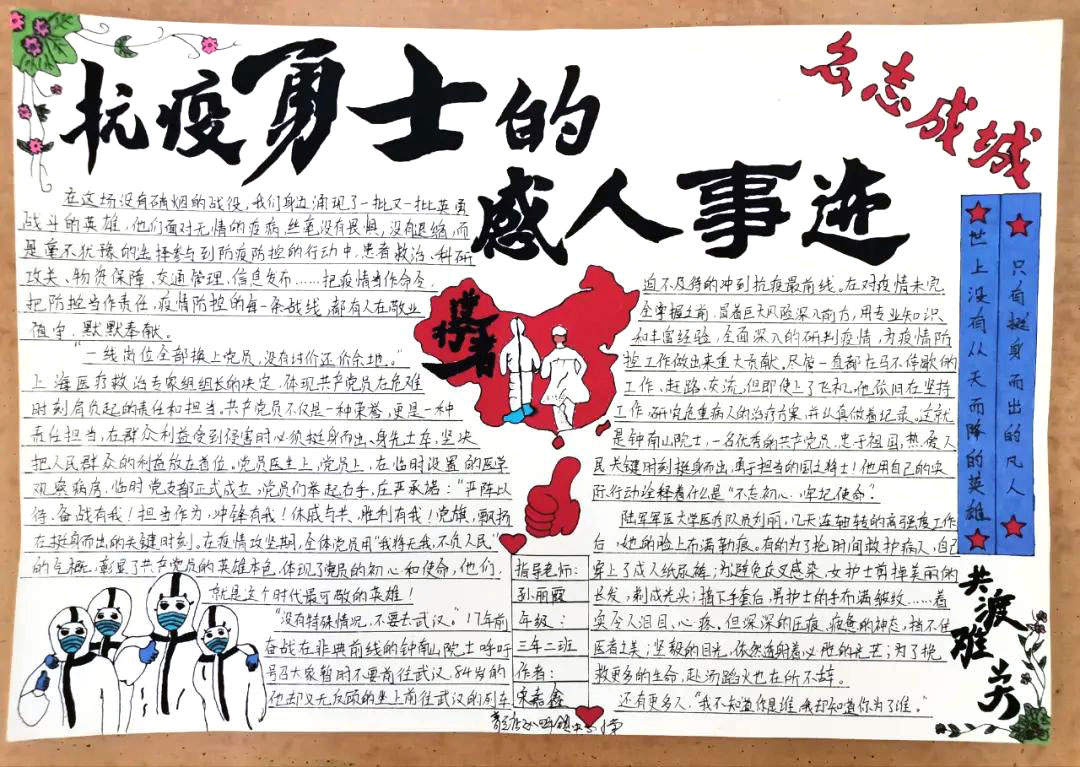 抗疫勇士的
感人事迹
众志成城
在这场没有硝烟的战役,我们身边涌现了一批又一批英勇
战斗的英雄,他们面对无情的疫病,丝毫没有畏惧,没有退缩,而
是毫不犹豫的选择参与到防疫防控的行动中,患者救治、科研
攻关、物资保障、交通管理、信息发布……把疫情当作命令,
把防控当作责任,疫情防控的每一条战线,都有人在敬业
值守,默默奉献。
"一线岗位全部换上党员,没有讨价还价余地。"
上海医疗救治专家组组长的决定,体现共产党员在危难
时刻肩负起的责任和担当。共产党员不仅是一种荣誉,更是一种
责任担当,在群众利益受到侵害时必须挺身而出、身先士卒,坚决
把人民群众的利益放在首位。党员医生上,党员上,在临时设置的医学
观察病房,临时党支部正式成立,党员们举起右手,庄严承诺:"严阵以
待、备战有我!担当作为,冲锋有我!休戚与共、胜利有我!党旗,飘扬
在挺身而出的关键时刻,在疫情攻坚期,全体党员用"我将无我,不负人民"
的气概,彰显了共产党员的英雄本色,体现了党员的初心和使命,他们
就是这个时代最可敬的英雄!
"没有特殊情况,不要去武汉。"17年前
奋战在非典前线的钟南山院士呼吁
号召大家暂时不要前往武汉,84岁的
他却义无反顾的坐上前往武汉的列车
逆行者
迫不及待的冲到抗疫最前线。在对疫情未完
全掌握之前,冒着巨大风险深入前方,用专业知识
和丰富经验,全面深入的研判疫情,为疫情防
控工作做出来重大贡献。尽管一直都在马不停歇的
工作、赶路、交流,但即使上了飞机,他依旧在坚持
工作,研究危重病人的治疗方案,并认真做着记录。这就
是钟南山院士,一名优秀的共产党员,忠于祖国,热爱人
民关键时刻挺身而出,勇于担当的国之将士!他用自己的实
际行动诠释着什么是"不忘初心、牢记使命"。
陆军军医大学医疗队员刘丽,几天连轴转的高强度工作
后,她的脸上布满勒痕。有的为了抢时间救护病人,自己
穿上了成人纸尿裤;为避免交叉感染,女护士剪掉美丽的
长发,剃成光头;摘下手套后,男护士的手布满皱纹……着
实令人泪目、心疼。但深深的压痕,疲惫的神态,挡不住
医者之美;坚毅的目光,依然透射着必胜的光芒;为了挽
救更多的生命,赴汤蹈火也在所不辞。
还有更多人,"我不知道你是谁,我却知道你为了谁。"
指导老师:
年级:
三年二班
作者:
宋嘉鑫
世上没有从天而降的英雄
只有挺身而出的凡人
共渡难关